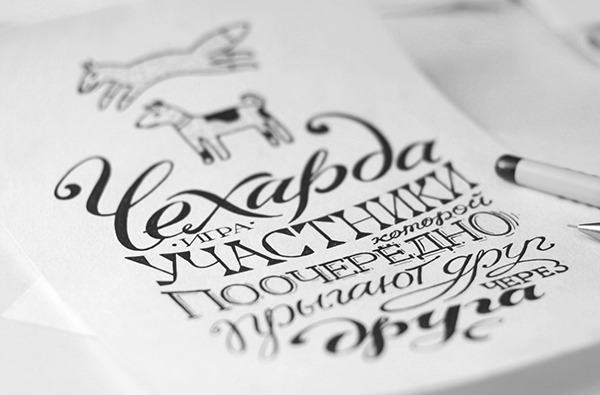 Чехарда
· ИГРА ·
УЧАСТНИКИ
которой
ПООЧЕРЁДНО
прыгают друг
ЧЕРЕЗ
друга